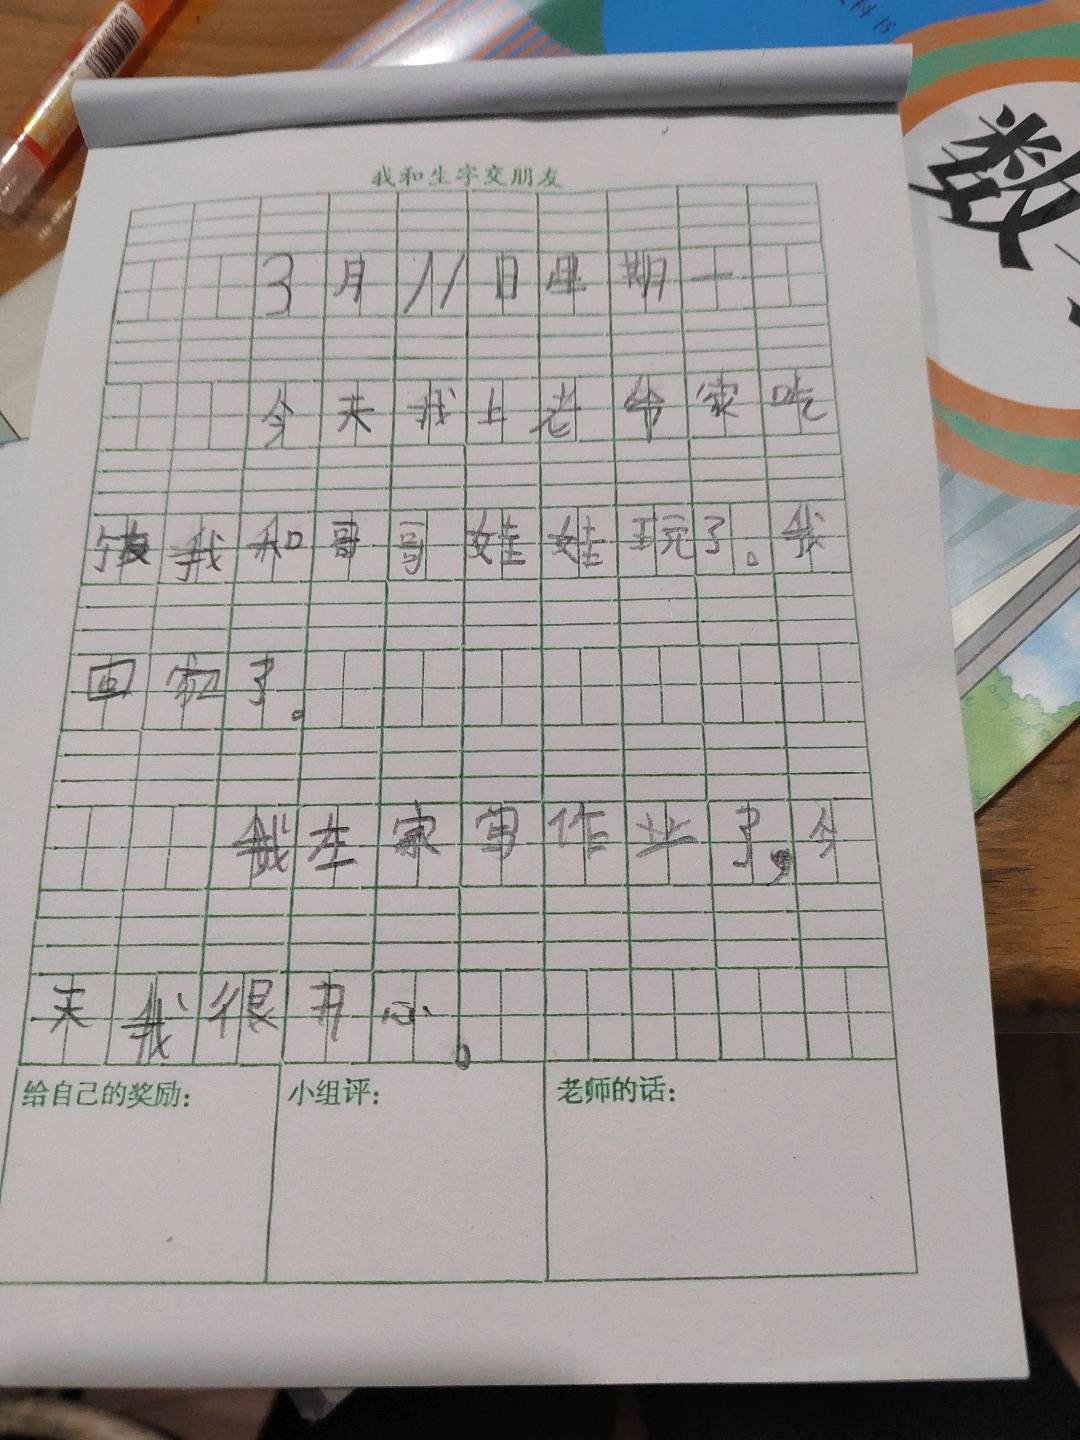 科书
数
我和生字交朋友
3月11日星期一
今天我上老爷家吃
饭我和哥哥娃娃玩了。我
回家了。
我在家写作业了,今
天我很开心。
给自己的奖励:
小组评:
老师的话: